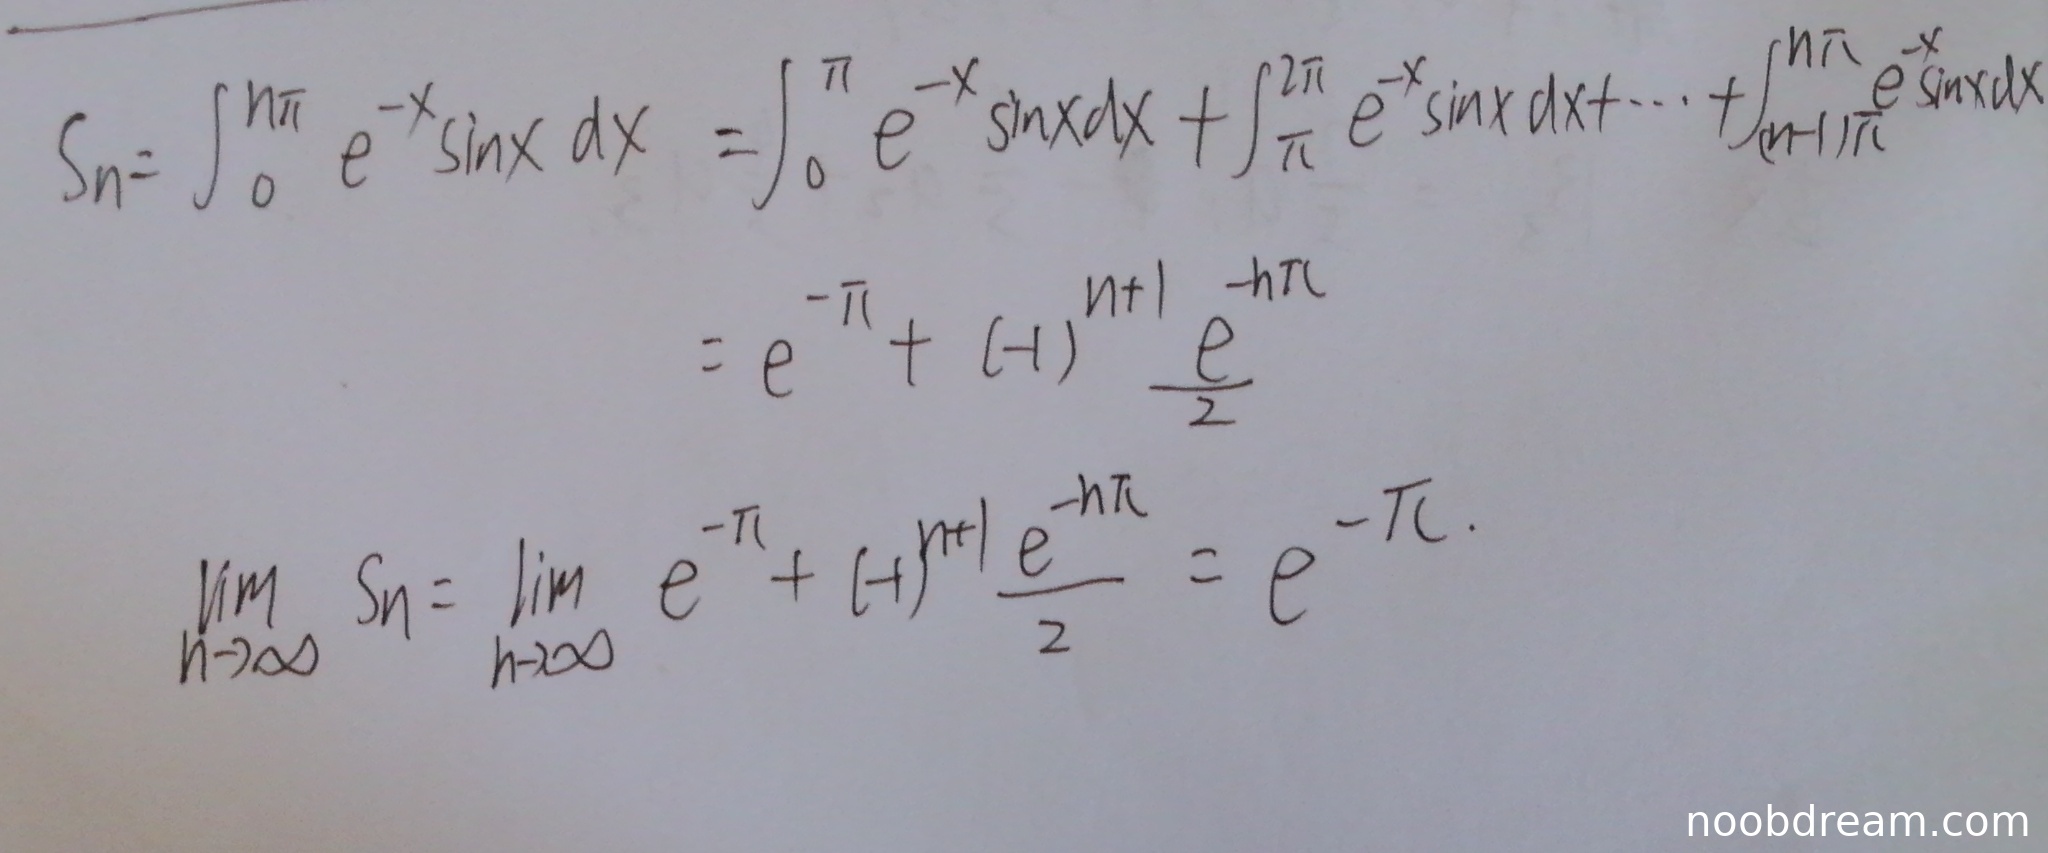 Sn = ∫₀^{nπ} e^{-x} sinx dx = ∫₀^{π} e^{-x} sinx dx + ∫_{π}^{2π} e^{-x} sinx dx + ··· + ∫_{(n-1)π}^{nπ} e^{-x} sinx dx
= e^{-π} + (-1)^{n+1} \frac{e^{-nπ}}{2}
lim_{n→∞} Sn = lim_{n→∞} e^{-π} + (-1)^{n+1} \frac{e^{-nπ}}{2} = e^{-π}.
noobdream.com